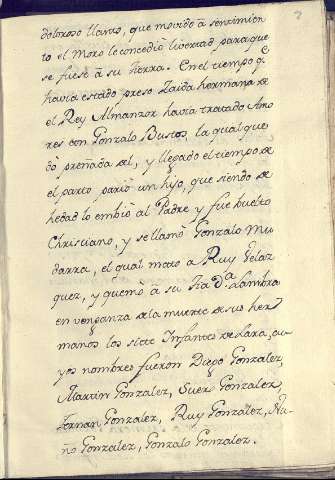 doloroso llanto, que movido â sentimien
to el Moro le concedio livertad para que
se fuese â su tierra. En el tiempo q̃
havia estado preso Zaida hermana de
el Rey Almanzor havia tratado Amo
res con Gonzalo Bustos, la qual que
dò preñada del, y llegado el tiempo de
el parto pario un hijo, que siendo de
hedad lo embiò al Padre y fue buelto
Christiano, y se llamò Gonzalo Mu
darra, el qual mato a Ruy Velaz
quez, y quemò a su tia D.ª Lambra
en venganza de la muerte de sus her
manos los siete Infantes de Lara, cu
yos nombres fueron Diego Gonzalez,
Martin Gonzalez, Suer Gonzalez,
Fernan Gonzalez, Ruy Gonzalez, Nu
ño Gonzalez, Gonzalo Gonzalez.